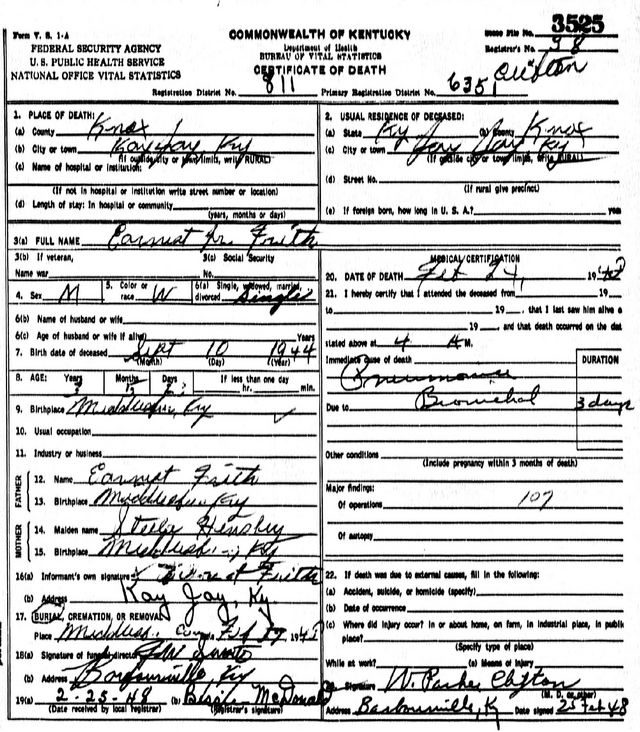 3525
Form V. S. 1-A
COMMONWEALTH OF KENTUCKY
State File No.
FEDERAL SECURITY AGENCY
Department of Health
Registrar's No. 98
U. S. PUBLIC HEALTH SERVICE
BUREAU OF VITAL STATISTICS
NATIONAL OFFICE VITAL STATISTICS
CERTIFICATE OF DEATH
Clifton
Registration District No. 811 Primary Registration District No. 6351
1. PLACE OF DEATH:
(a) County Knox
(b) City or town Kayjay, Ky
(If outside city or town limits, write RURAL)
(c) Name of hospital or institution:
(If not in hospital or institution write street number or location)
(d) Length of stay: In hospital or community
(years, months or days)
2. USUAL RESIDENCE OF DECEASED:
(a) State Ky (b) County Knox
(c) City or town Jay Ky
(If outside city or town limits, write RURAL)
(d) Street No.
(If rural give precinct)
(e) If foreign born, how long in U. S. A.? years
3(a) FULL NAME Earnest Jr. Frith
3(b) If veteran, 3(c) Social Security
Name war No.
4. Sex M 5. Color or race W 6(a) Single, widowed, married, divorced Single
6(b) Name of husband or wife
6(c) Age of husband or wife if alive Years
7. Birth date of deceased Sept 10 1944
(Month) (Day) (Year)
8. AGE: Years Months Days If less than one day
3 5 hr. min.
9. Birthplace Ky
10. Usual occupation
11. Industry or business
FATHER
12. Name Earnest Frith
13. Birthplace Ky
MOTHER
14. Maiden name Hensley
15. Birthplace Ky
16(a) Informant's own signature Earnest Frith
(b) Address Kay Jay, Ky
17. BURIAL, CREMATION, OR REMOVAL
Place Feb 19
18(a) Signature of funeral director
(b) Address Barbourville, Ky
19(a) 2-25-48 (b) McDonald
(Date received by local registrar) (Registrar's signature)
MEDICAL CERTIFICATION
20. DATE OF DEATH Feb 24, 19 48
21. I hereby certify that I attended the deceased from 19
to 19 , that I last saw him alive o
19 , and that death occurred on the dat
stated above at 4 A M.
Immediate cause of death DURATION
Pneumonia
Due to Bronichal 3 days
Other conditions
(Include pregnancy within 3 months of death)
Major findings:
Of operations 107
Of autopsy
22. If death was due to external causes, fill in the following:
(a) Accident, suicide, or homicide (specify)
(b) Date of occurrence
(c) Where did injury occur? In or about home, on farm, in industrial place, in public
place?
(Specify type of place)
While at work? (e) Means of injury
Signature W. Parker Clifton
(M. D. or other)
Address Barbourville, K Date signed 25 Feb 48